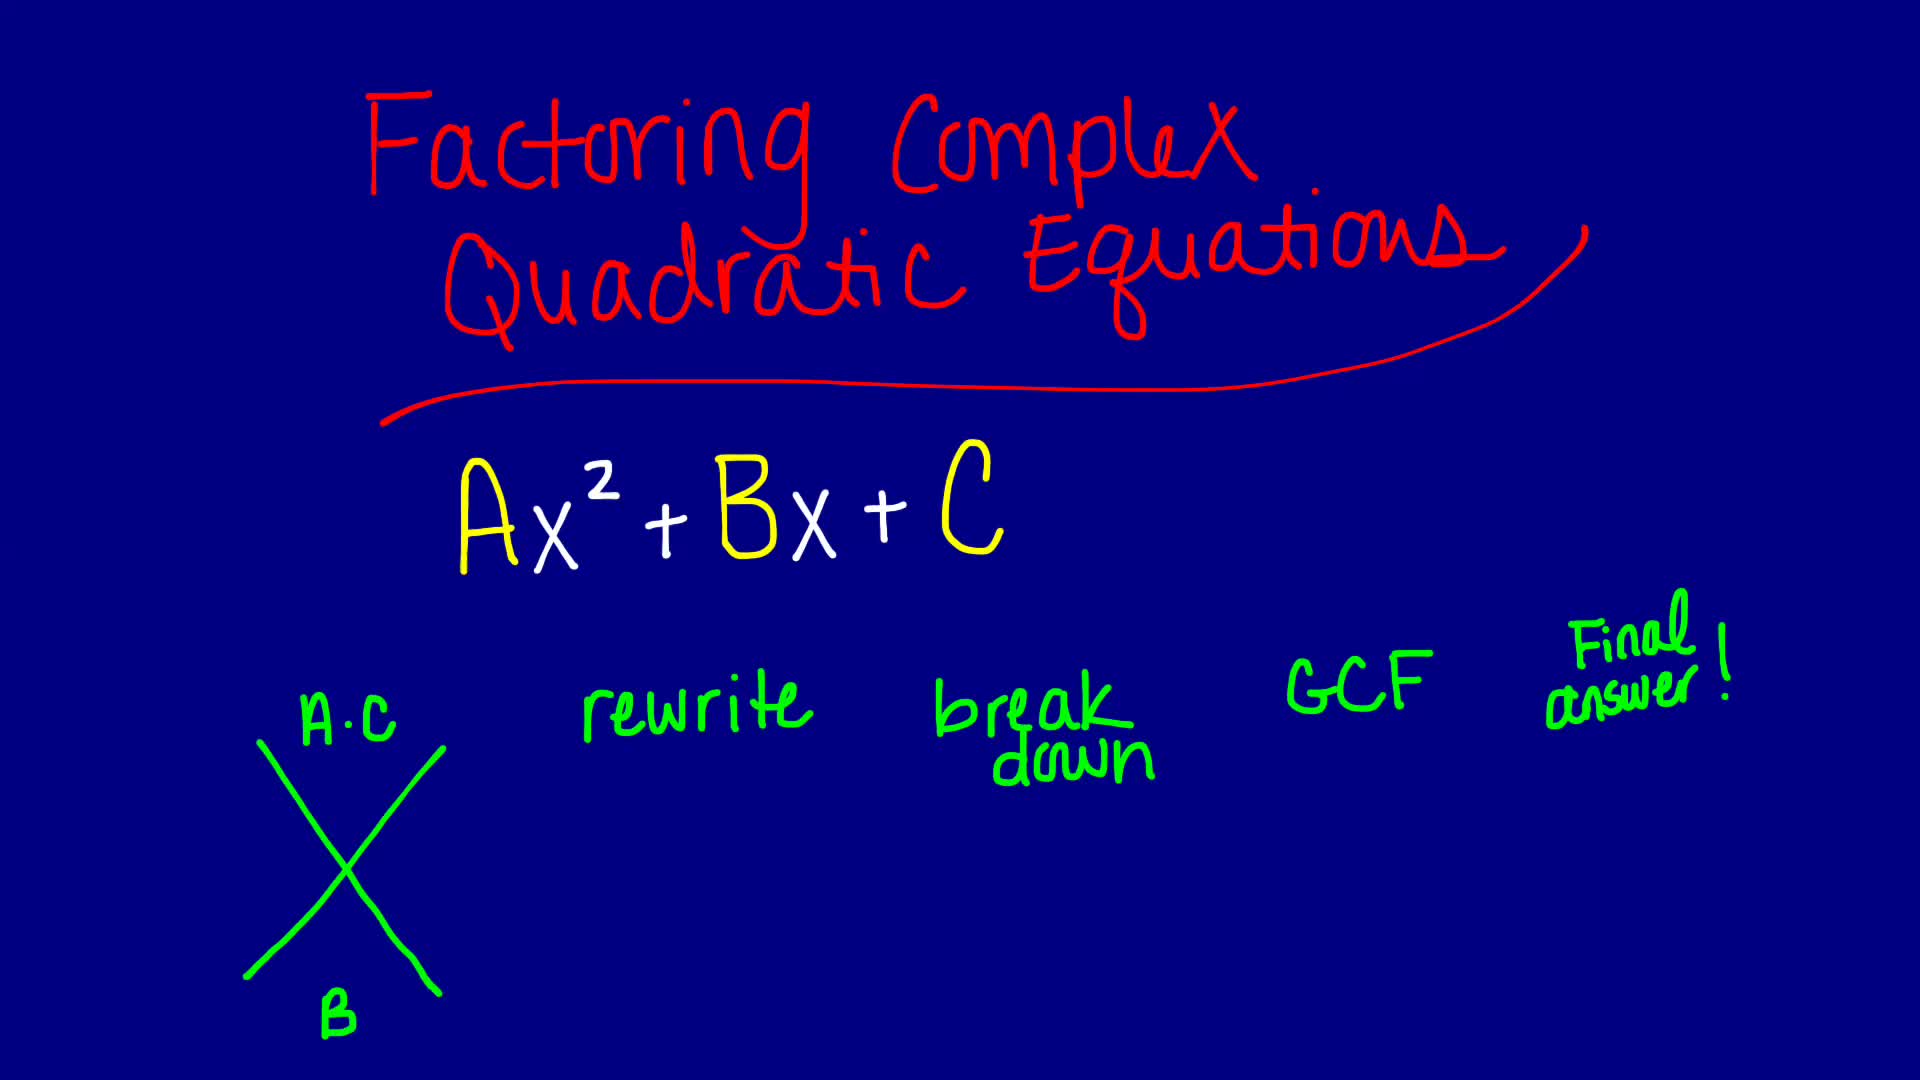 Factoring Complex
Quadratic Equations
Ax² + Bx + C
A·C
rewrite
break
down
GCF
Final
answer!
B